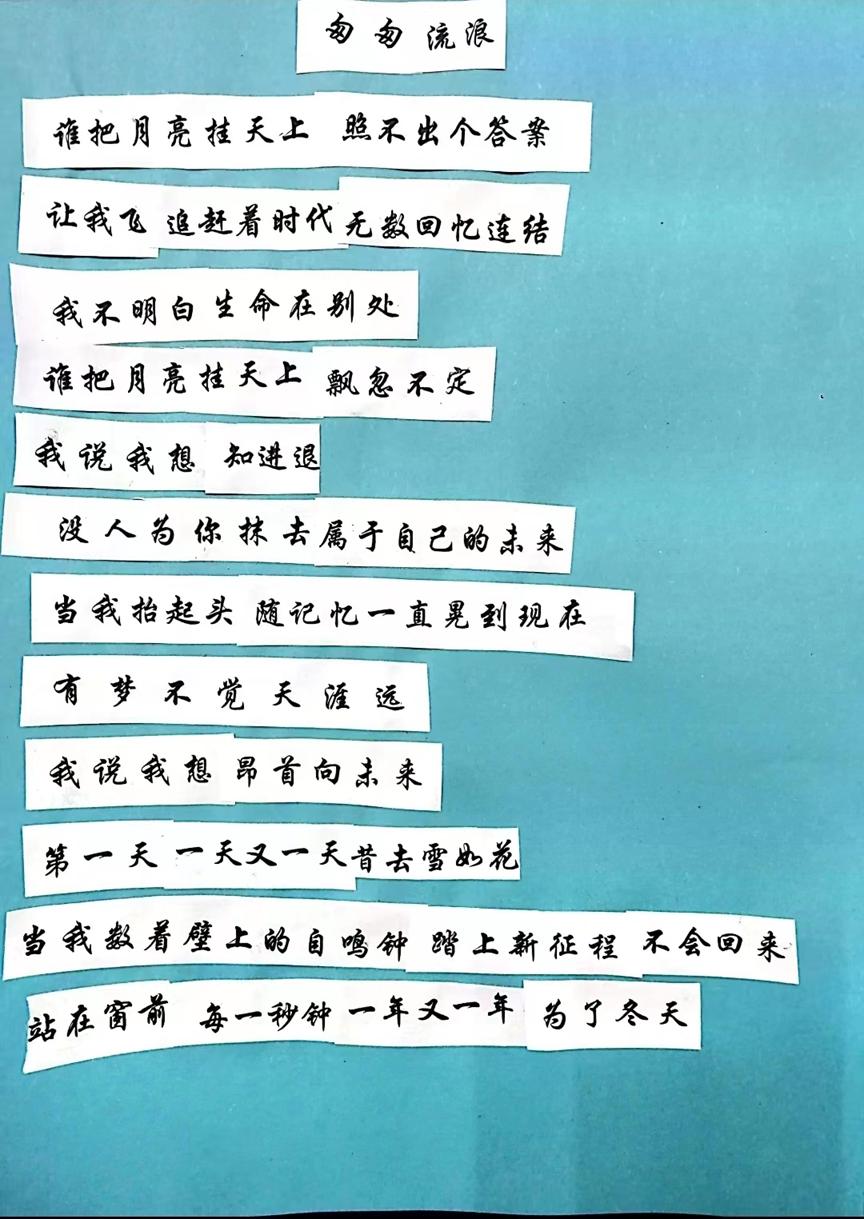 匆匆流浪
谁把月亮挂天上 照不出个答案
让我飞 追赶着时代 无数回忆连结
我不明白 生命在别处
谁把月亮挂天上 飘忽不定
我说我想 知进退
没人为你抹去 属于自己的未来
当我抬起头 随记忆一直晃到现在
有梦不觉天涯远
我说我想 昂首向未来
第一天 一天又一天 昔去雪如花
当我数着壁上的自鸣钟 踏上新征程 不会回来
站在窗前 每一秒钟 一年又一年 为了冬天